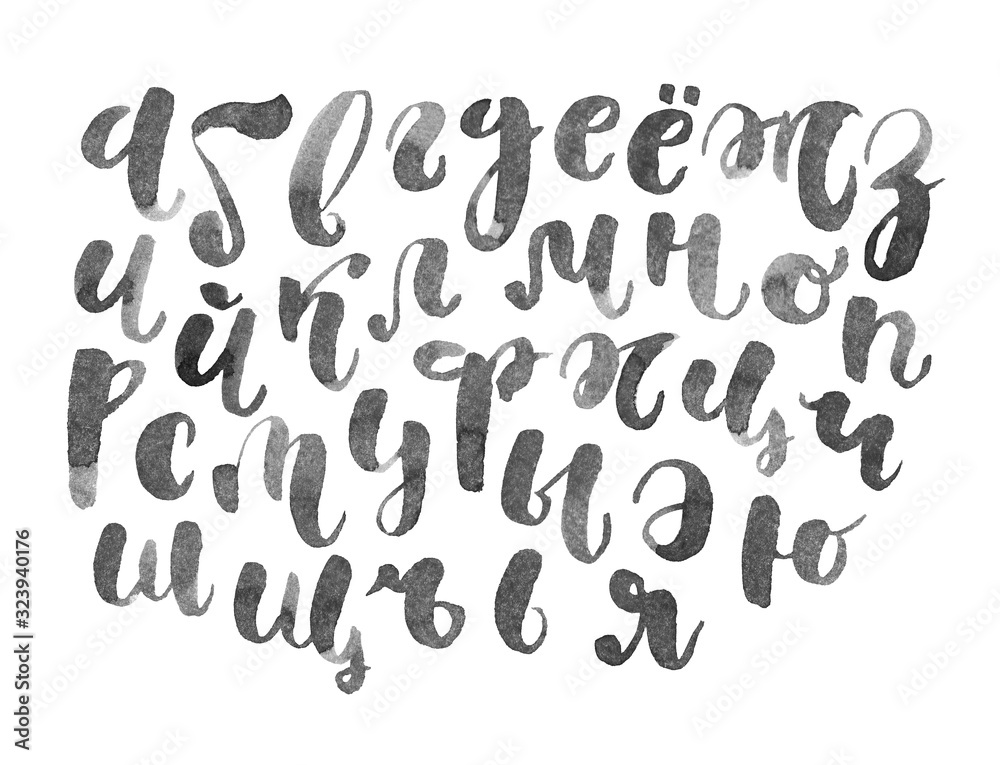 а б в г д е ё ж з
и й к л м н о п
р с т у ф х ц ч
ы э ю
ш щ ъ ь я
Adobe Stock | #323940176